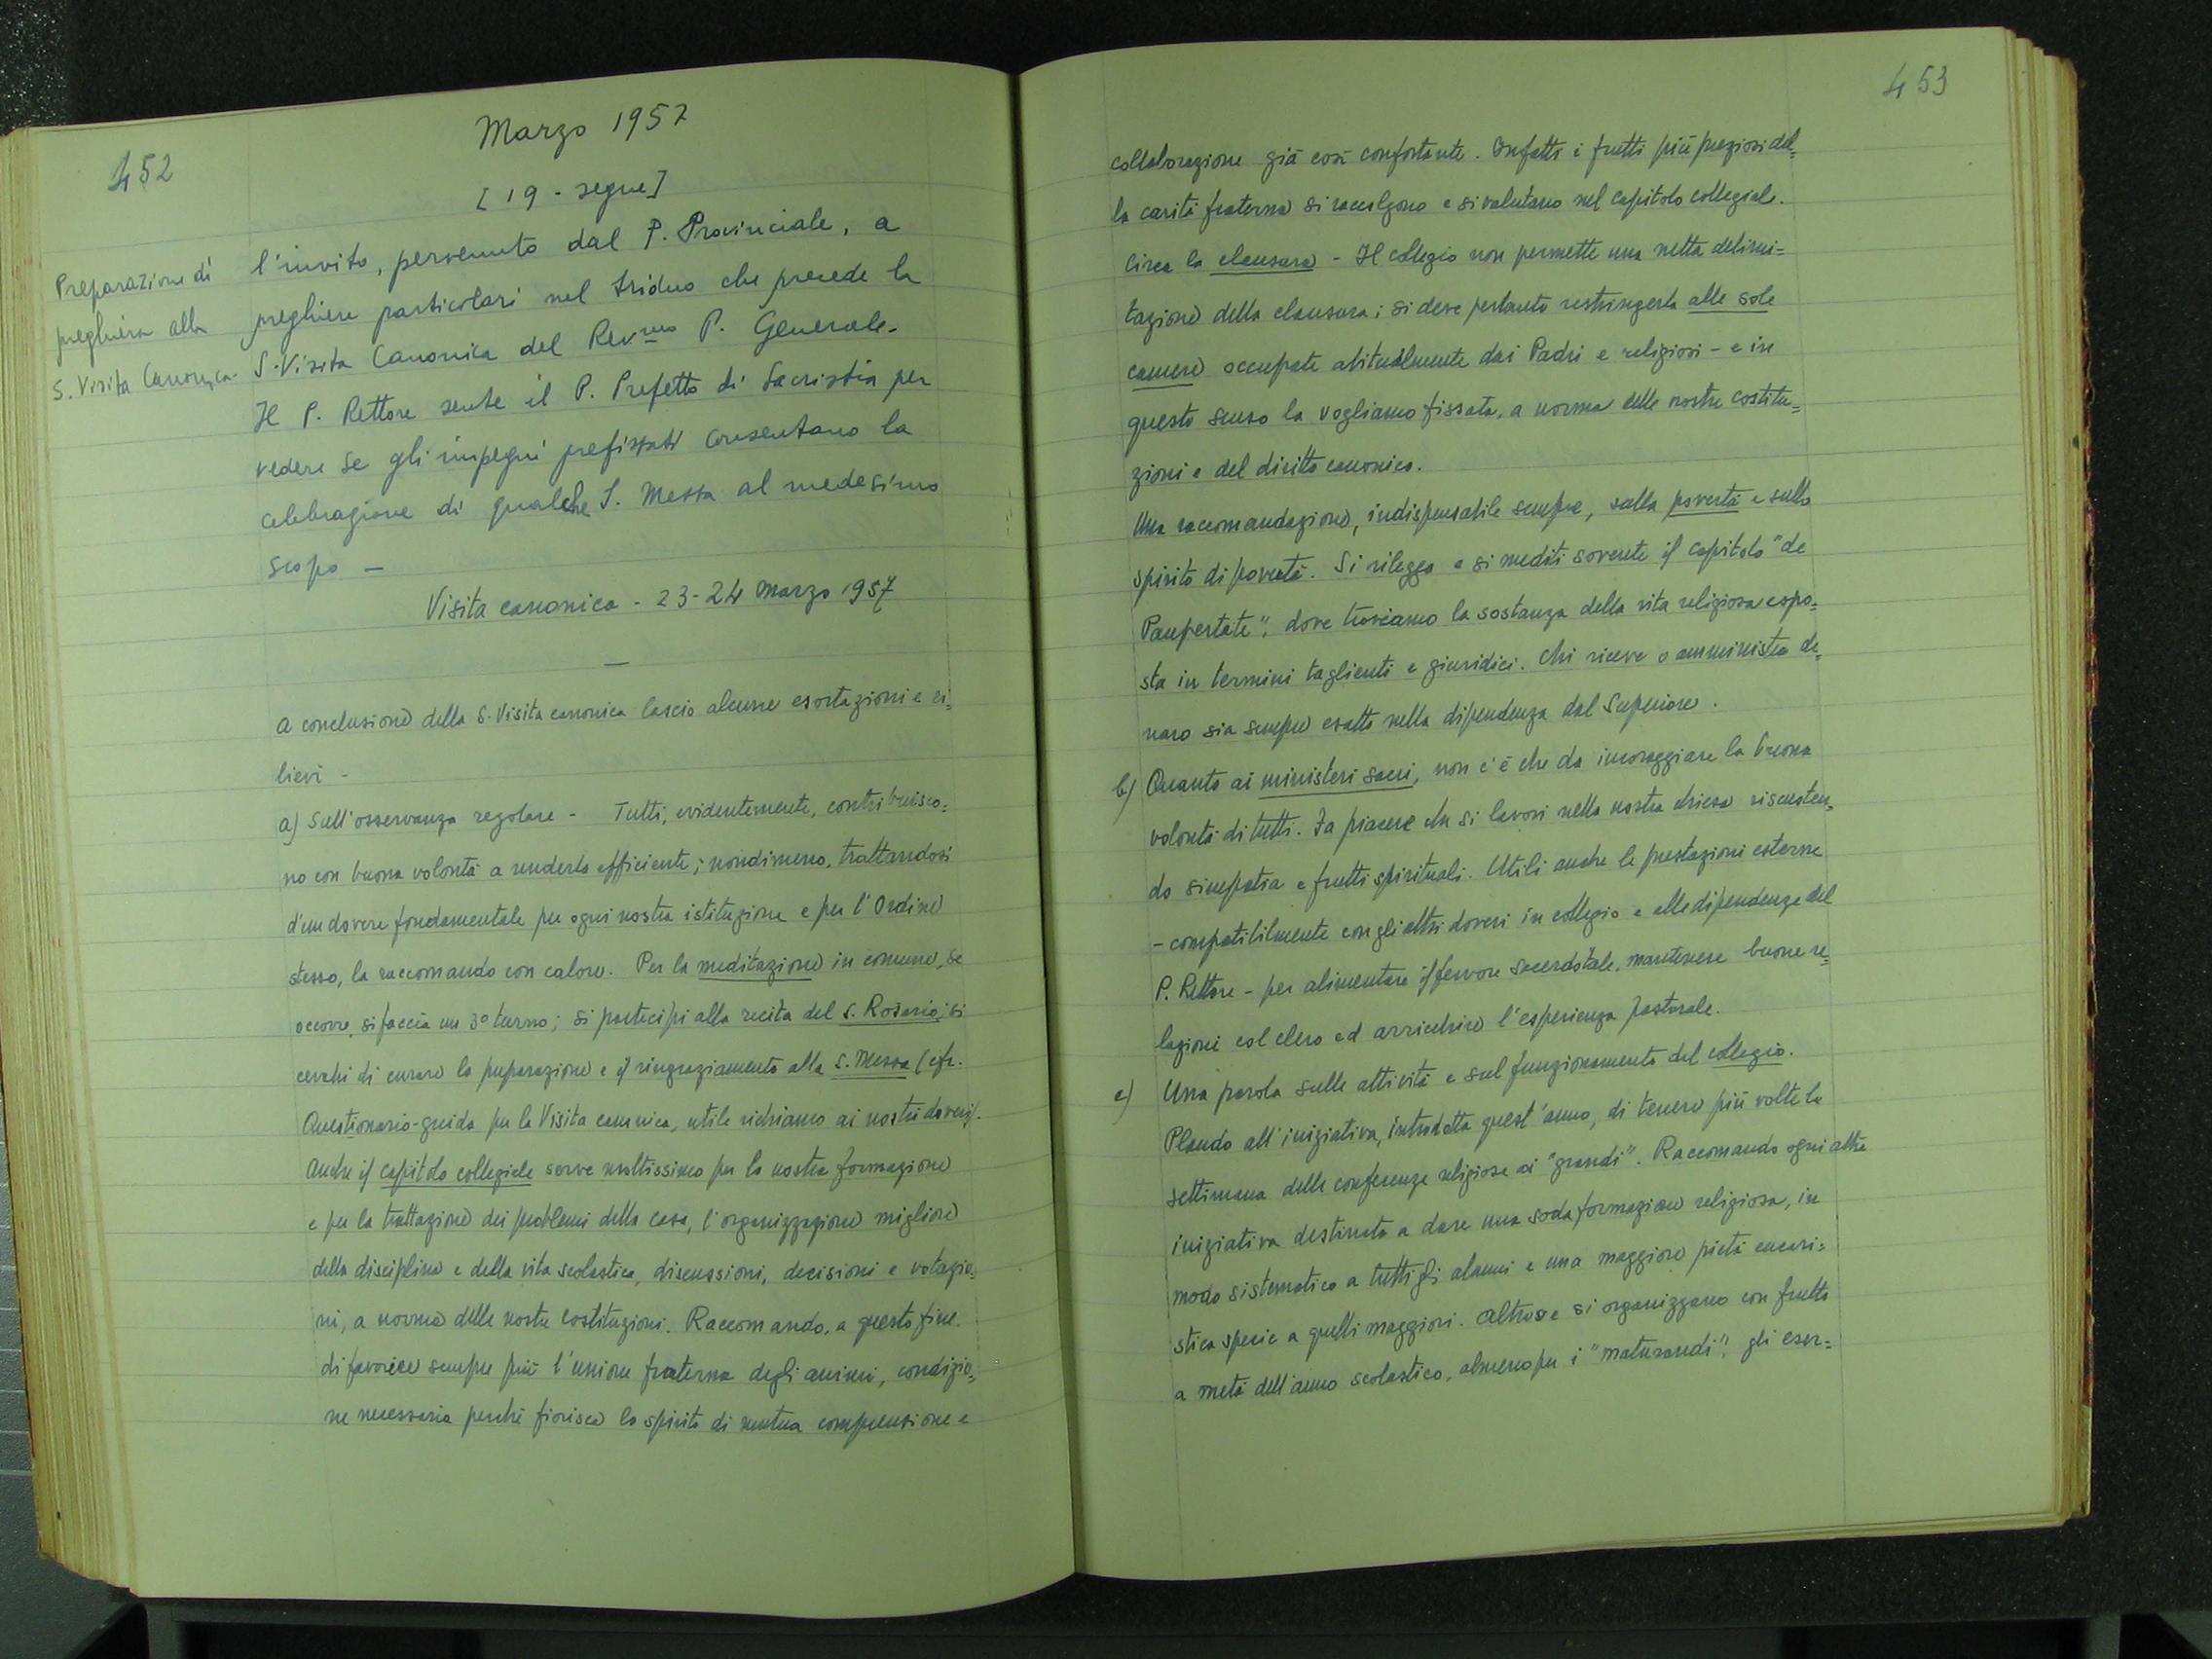 452
Marzo 1957
[19 - segue]
Preparazione di
preghiera alla
S. Visita Canonica -
l'invito, pervenuto dal P. Provinciale, a
preghiere particolari nel triduo che precede la
S. Visita Canonica del Rev.mo P. Generale.
Il P. Rettore sente il P. Prefetto di Sacristia per
vedere se gli impegni prefissati consentano la
celebrazione di qualche S. Messa al medesimo
scopo -
Visita canonica - 23-24 marzo 1957
—
A conclusione della S. Visita canonica lascio alcune esortazioni e ri=
lievi -
a) Sull'osservanza regolare - Tutti, evidentemente, contribuisco=
no con buona volontà a renderla efficiente; nondimeno, trattandosi
d'un dovere fondamentale per ogni nostra istituzione e per l'Ordine
stesso, la raccomando con calore. Per la meditazione in comune, se
occorre, si faccia un 3° turno; si partecipi alla recita del S. Rosario; si
cerchi di curare la preparazione e il ringraziamento alla S. Messa (cfr.
Questionario-guida per la Visita canonica, utile richiamo ai nostri doveri).
Anche il capitolo collegiale serve moltissimo per la nostra formazione
e per la trattazione dei problemi della casa, l'organizzazione migliore
della disciplina e della vita scolastica, discussioni, decisioni e votazio=
ni, a norma delle nostre costituzioni. Raccomando, a questo fine,
di favorire sempre più l'unione fraterna degli animi, condizio=
ne necessaria perché fiorisca lo spirito di mutua comprensione e
453
collaborazione già così confortante. Infatti i frutti più preziosi del=
la carità fraterna si raccolgono e si valutano nel capitolo collegiale.
Circa la clausura - Il collegio non permette una netta delimi=
tazione della clausura; si deve pertanto restringerla alle sole
camere occupate abitualmente dai Padri e religiosi - e in
questo senso la vogliamo fissata, a norma delle nostre costitu=
zioni e del diritto canonico.
Una raccomandazione, indispensabile sempre, sulla povertà e sullo
spirito di povertà. Si rilegga e si mediti sovente il capitolo "de
Paupertate", dove troviamo la sostanza della vita religiosa espo=
sta in termini taglienti e giuridici. Chi riceve o amministra de=
naro sia sempre esatto nella dipendenza dal Superiore.
b) Quanto ai ministeri sacri, non c'è che da incoraggiare la buona
volontà di tutti. Fa piacere che si lavori nella nostra chiesa riscuoten=
do simpatia e frutti spirituali. Utili anche le prestazioni esterne
- compatibilmente con gli altri doveri in collegio e alle dipendenze del
P. Rettore - per alimentare il fervore sacerdotale, mantenere buone re=
lazioni col clero ed arricchire l'esperienza pastorale.
c) Una parola sulle attività e sul funzionamento del collegio.
Plaudo all'iniziativa, introdotta quest'anno, di tenere più volte la
settimana delle conferenze religiose ai "grandi". Raccomando ogni altra
iniziativa destinata a dare una soda formazione religiosa, in
modo sistematico a tutti gli alunni e una maggiore pietà eucari=
stica specie a quelli maggiori. Altrove si organizzano con frutto
a metà dell'anno scolastico, almeno per i "maturandi", gli eser=